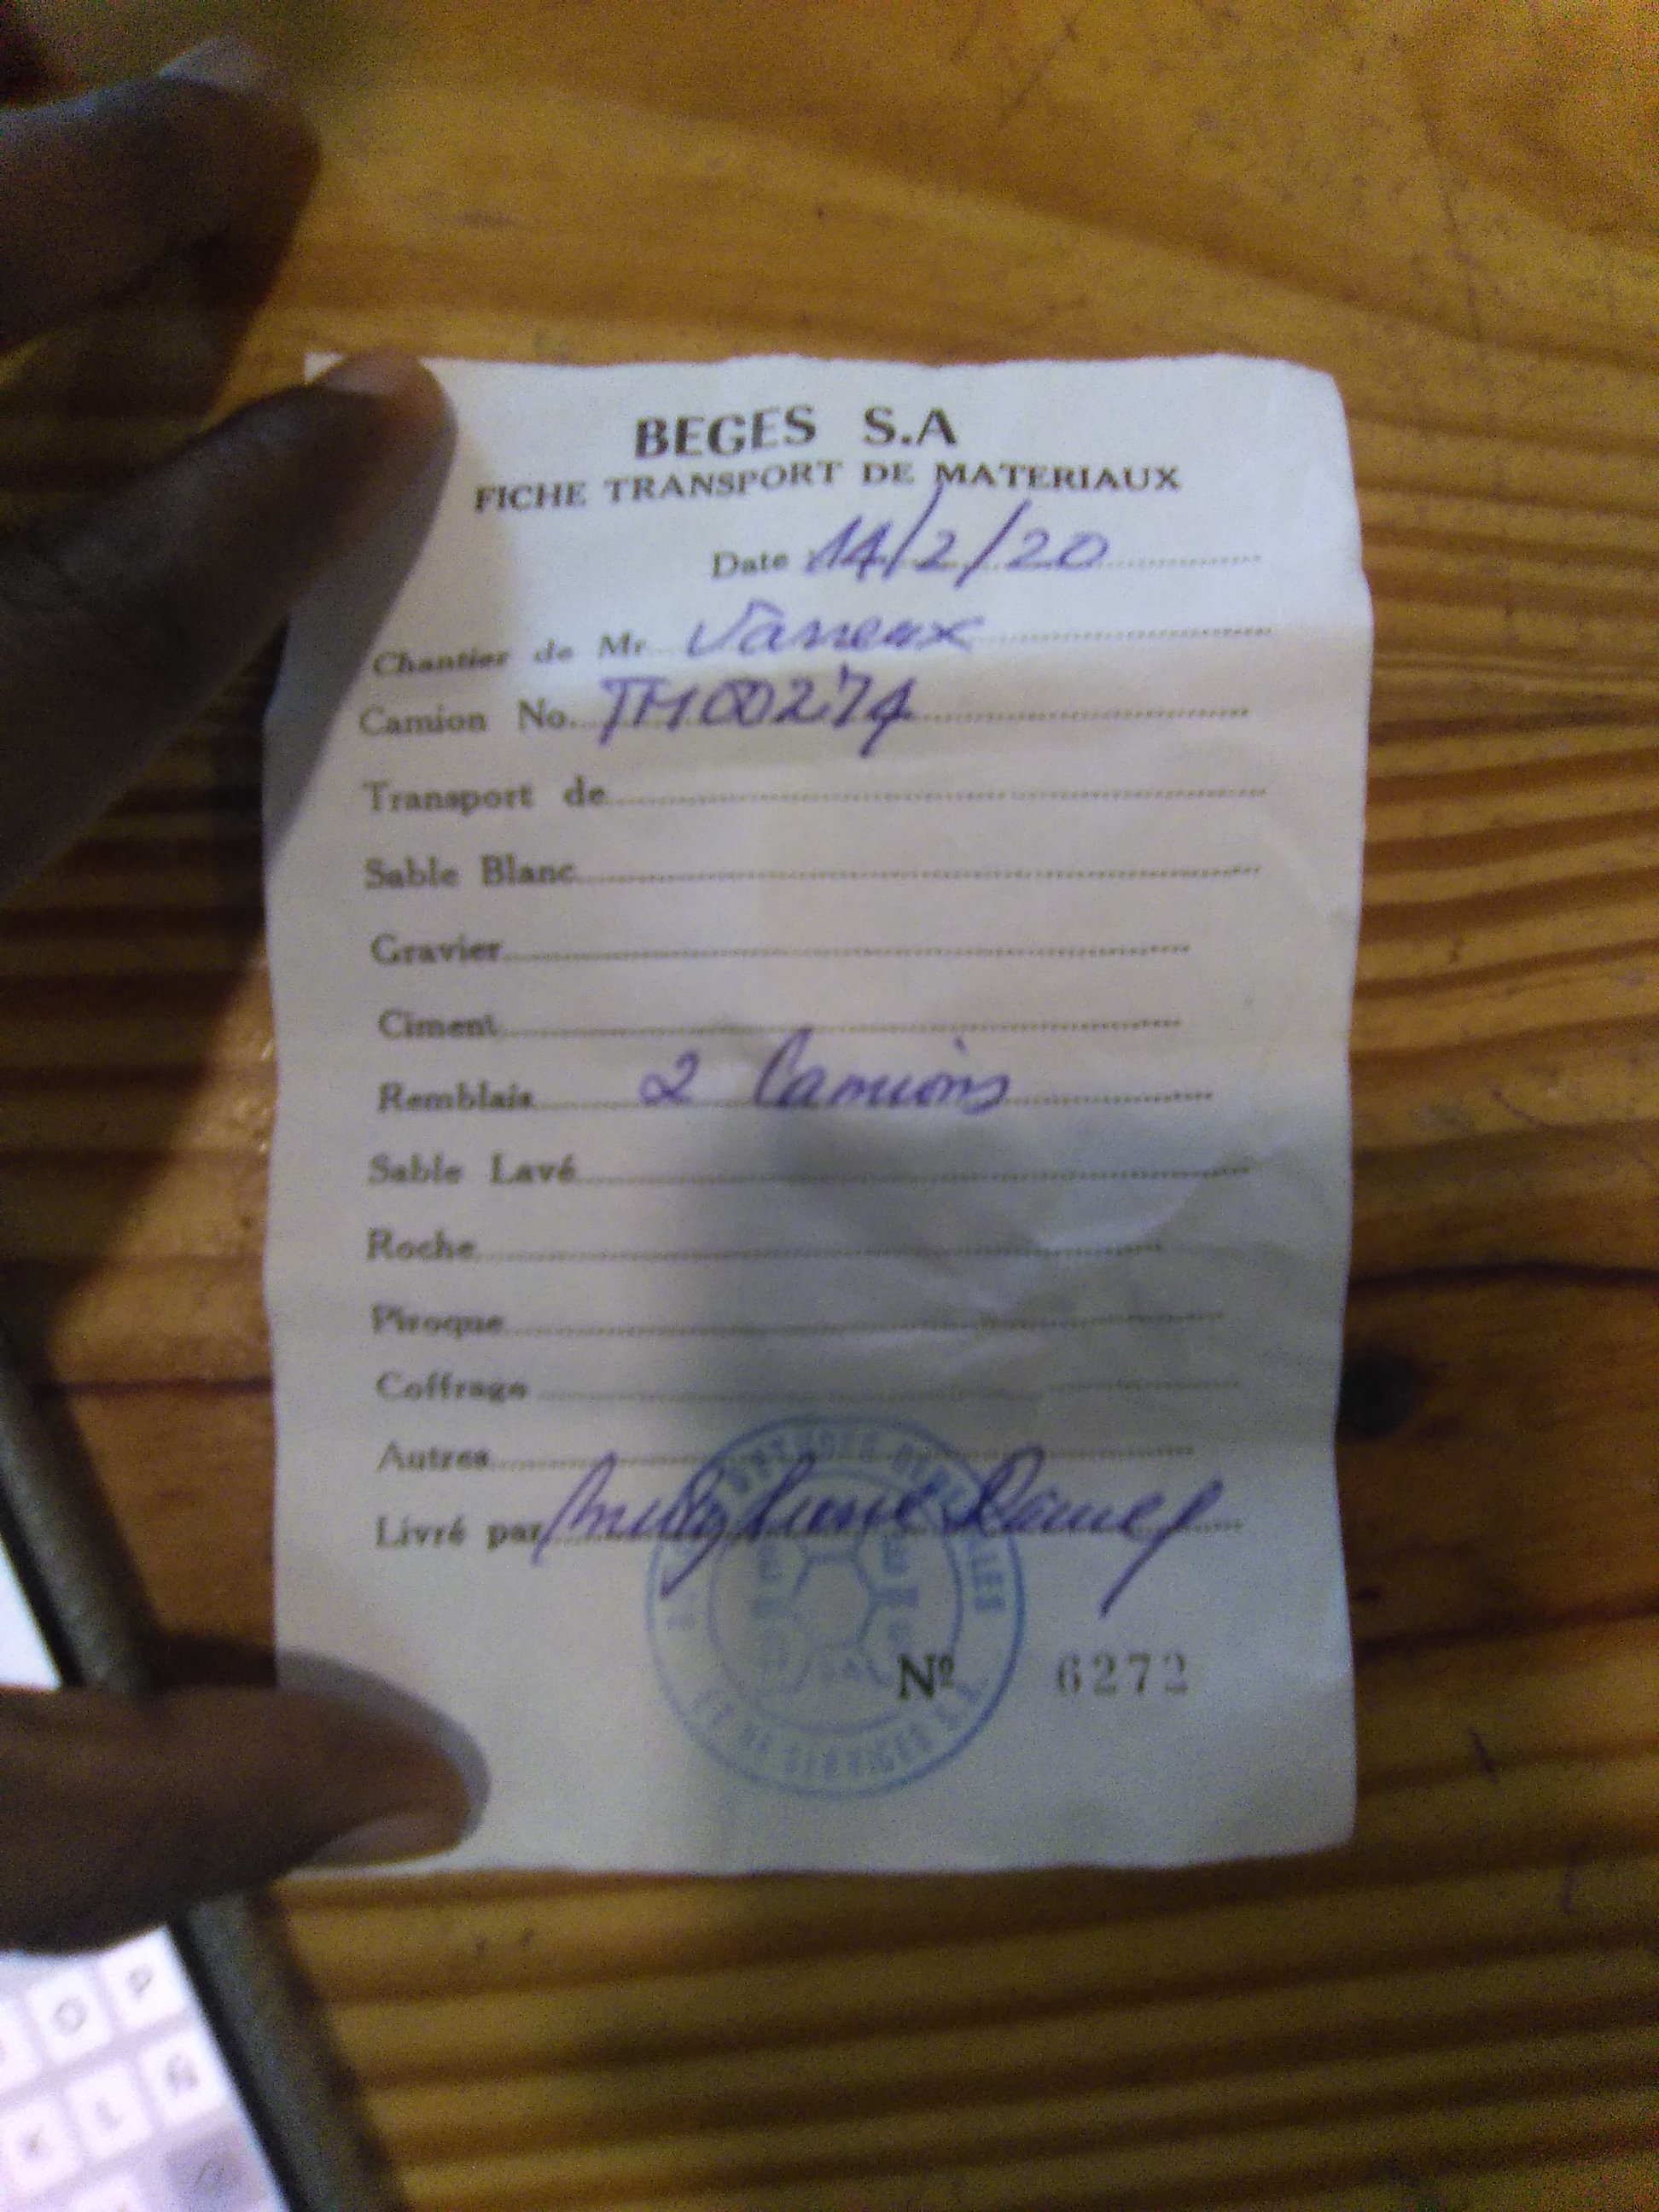 BEGES S.A
FICHE TRANSPORT DE MATERIAUX
Date 14/2/20
Chantier de Mr. Varreux
Camion No. TH00274
Transport de
Sable Blanc
Gravier
Ciment
Remblais 2 Camions
Sable Lavé
Roche
Piroque
Coffrage
Autres
Livré par
ET DE SERVICES S.A.
Nº 6272
O P
K L Ñ